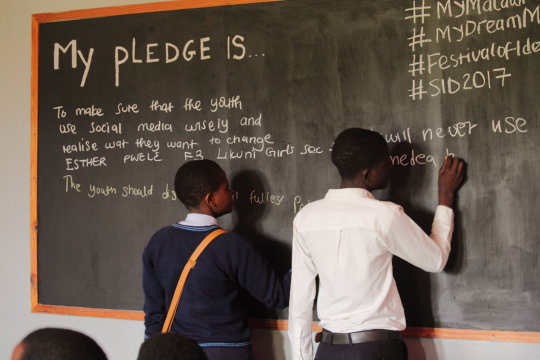 My pLEDGE IS...
#MyMalawi
#MyDreamM
#FestivalofIde
#SID2017
To make sure that the youth
use social media wisely and
realise wat they want to change
ESTHER PWELE F3 Likuni Girls sec
The youth should d fullest
will never use
medea